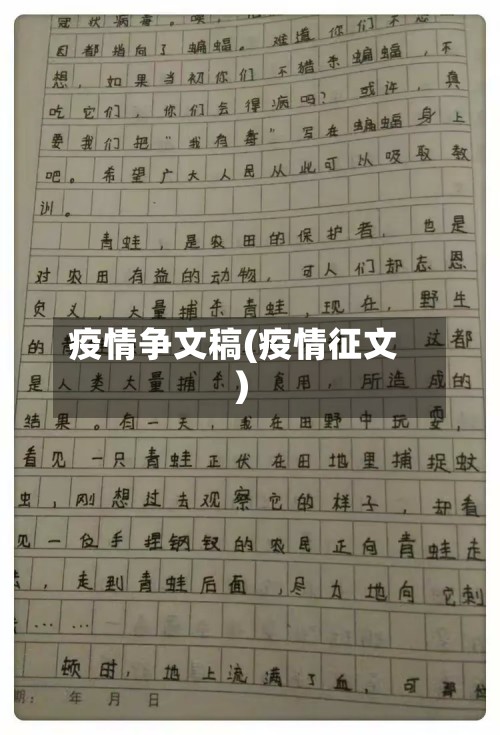 冠状病毒。唉，
目都指向了蝙蝠。难道你们不想
想，如果当初你们不猎杀蝙蝠，不
吃它们，你们会得病吗？或许，真
要我们把“我有毒”写在蝙蝠身上
吧。希望广大人民从此可以吸取教
训。
青蛙，是农田的保护者，也是
对农田有益的动物，可人们却忘恩
负义，大量捕杀青蛙，现在，野生
的青
疫情争文稿(疫情征文
)
这都
是人类大量捕杀，食用，所造成的
结果。有一天，我在田野中玩耍，
看见一只青蛙正伏在田地里捕捉蚊
虫，刚想过去观察它的样子，却看
见一位手捏钢钗的农民正向青蛙走
去，走到青蛙后面，尽力地向它刺
去……
顿时，地上流满了血，可那位
期： 年 月 日